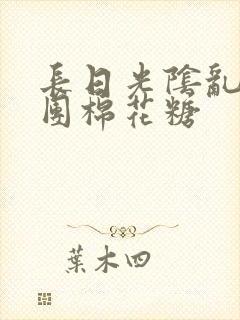 長日光陰亂
團棉花糖
葉木四